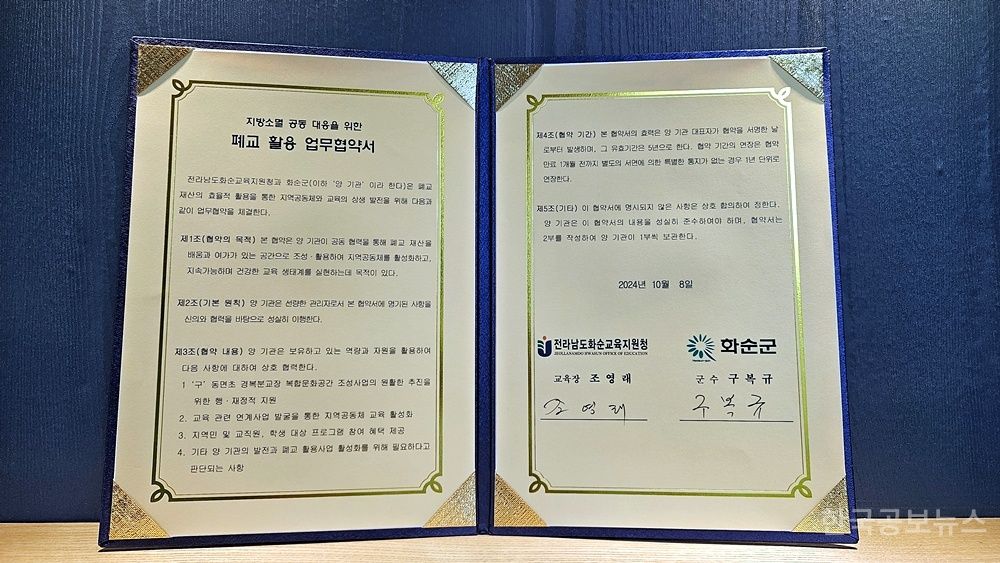 지방소멸 공동 대응을 위한
폐교 활용 업무협약서
전라남도화순교육지원청과 화순군(이하 '양 기관' 이라 한다)은 폐교
재산의 효율적 활용을 통한 지역공동체와 교육의 상생 발전을 위해 다음과
같이 업무협약을 체결한다.
제1조(협약의 목적) 본 협약은 양 기관이 공동 협력을 통해 폐교 재산을
배움과 여가가 있는 공간으로 조성·활용하여 지역공동체를 활성화하고,
지속가능하며 건강한 교육 생태계를 실현하는데 목적이 있다.
제2조(기본 원칙) 양 기관은 선량한 관리자로서 본 협약서에 명기된 사항을
신의와 협력을 바탕으로 성실히 이행한다.
제3조(협약 내용) 양 기관은 보유하고 있는 역량과 자원을 활용하여
다음 사항에 대하여 상호 협력한다.
1 '구' 동면초 경복분교장 복합문화공간 조성사업의 원활한 추진을
위한 행·재정적 지원
2. 교육 관련 연계사업 발굴을 통한 지역공동체 교육 활성화
3. 지역민 및 교직원, 학생 대상 프로그램 참여 혜택 제공
4. 기타 양 기관의 발전과 폐교 활용사업 활성화를 위해 필요하다고
판단되는 사항
제4조(협약 기간) 본 협약서의 효력은 양 기관 대표자가 협약을 서명한 날
로부터 발생하며, 그 유효기간은 5년으로 한다. 협약 기간의 연장은 협약
만료 1개월 전까지 별도의 서면에 의한 특별한 통지가 없는 경우 1년 단위로
연장한다.
제5조(기타) 이 협약서에 명시되지 않은 사항은 상호 합의하여 정한다.
양 기관은 이 협약서의 내용을 성실히 준수하여야 하며, 협약서는
2부를 작성하여 양 기관이 1부씩 보관한다.
2024년 10월 8일
전라남도화순교육지원청
JEOLLANAMDO HWASUN OFFICE OF EDUCATION
화순군
교육장 조영래
군수 구복규
조영래
구복규
한국공보뉴스